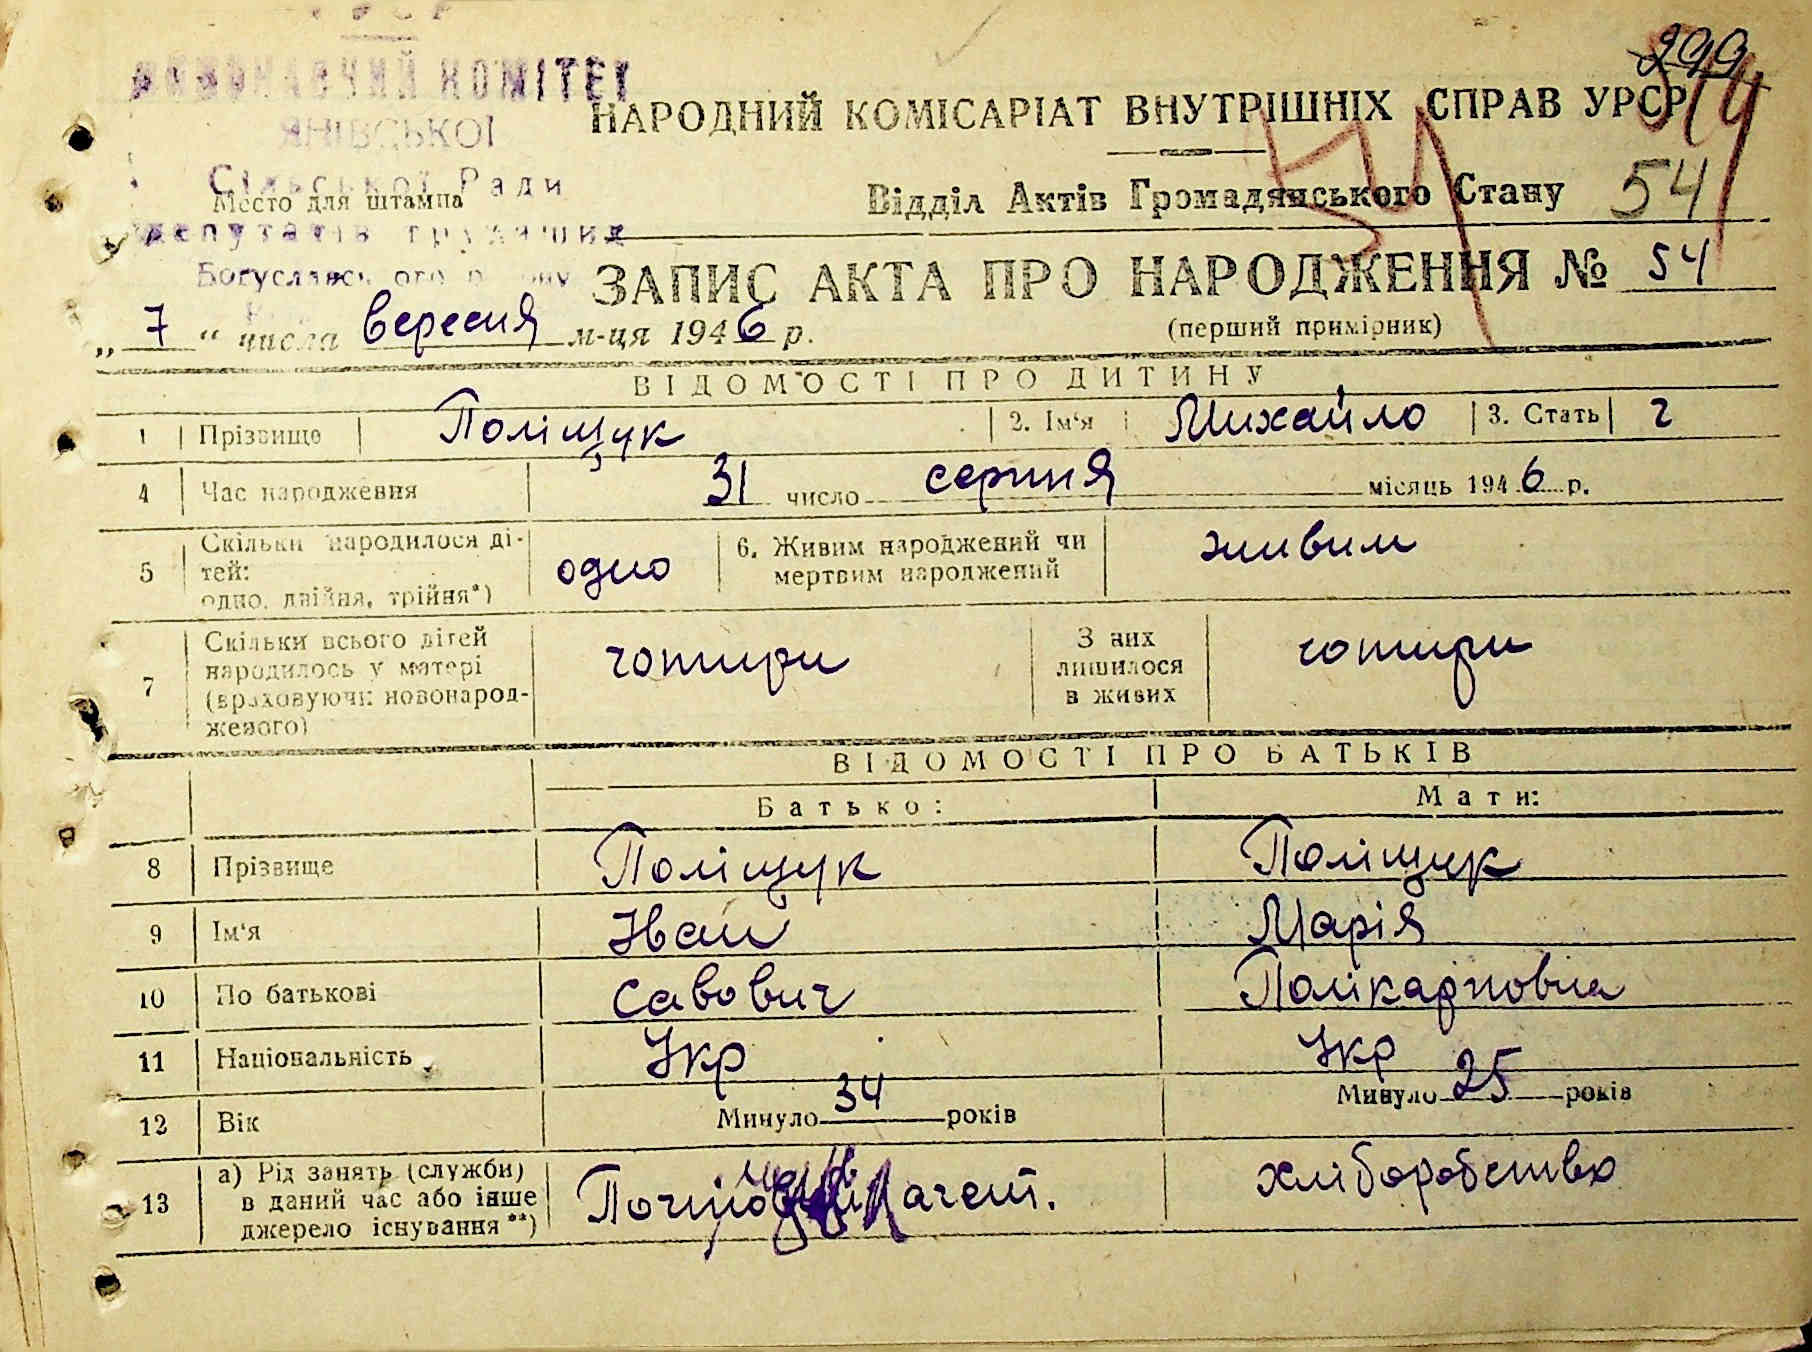 УРСР
299
ВИКОНАВЧИЙ КОМІТЕТ
НАРОДНИЙ КОМІСАРІАТ ВНУТРІШНІХ СПРАВ УРСР
ЯНІВСЬКОЇ
Сільської Ради
Место для штампа
Відділ Актів Громадянського Стану 54
депутатів трудящих
Богуславського району
ЗАПИС АКТА ПРО НАРОДЖЕННЯ № 54
(перший примірник)
„ 7 “ числа вересня м-ця 1946 р.
ВІДОМОСТІ ПРО ДИТИНУ
1 Прізвище Поліщук 2. Ім‘я Михайло 3. Стать ч
4 Час народження 31 число серпня місяць 1946 р.
5 Скільки народилося ді-
тей:
одно, двійня, трійня*) одно 6. Живим народжений чи
мертвим народжений живим
7 Скільки всього дітей
народилось у матері
(враховуючи новонарод-
женого) чотири З них
лишилося
в живих чотири
ВІДОМОСТІ ПРО БАТЬКІВ
Батько: Мати:
8 Прізвище Поліщук Поліщук
9 Ім‘я Іван Марія
10 По батькові Савович Полікарповна
11 Національність Укр Укр
12 Вік Минуло 34 років Минуло 25 років
13 а) Рід занять (служби)
в даний час або інше
джерело існування**) агент. хліборобство